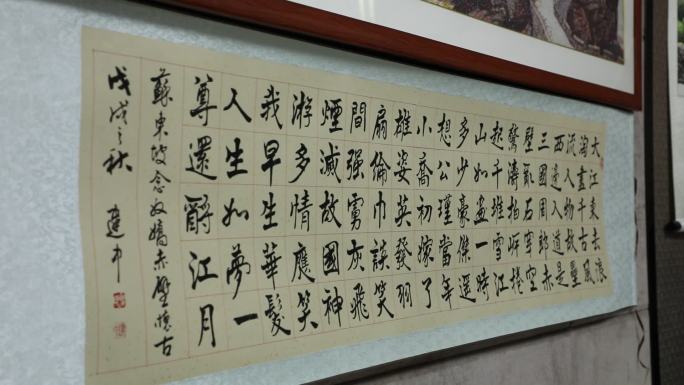 大江東去浪
淘盡千古風
流人物故壘
西邊人道是
三國周郎赤
壁亂石穿空
驚濤拍岸捲
起千堆雪江
山如畫一時
多少豪傑遥
想公瑾當年
小喬初嫁了
雄姿英發羽
扇倫巾談笑
間强虜灰飛
煙滅故國神
游多情應笑
我早生華髮
人生如夢一
尊還酹江月
蘇東坡念奴嬌赤壁懷古
戊戌之秋 建中